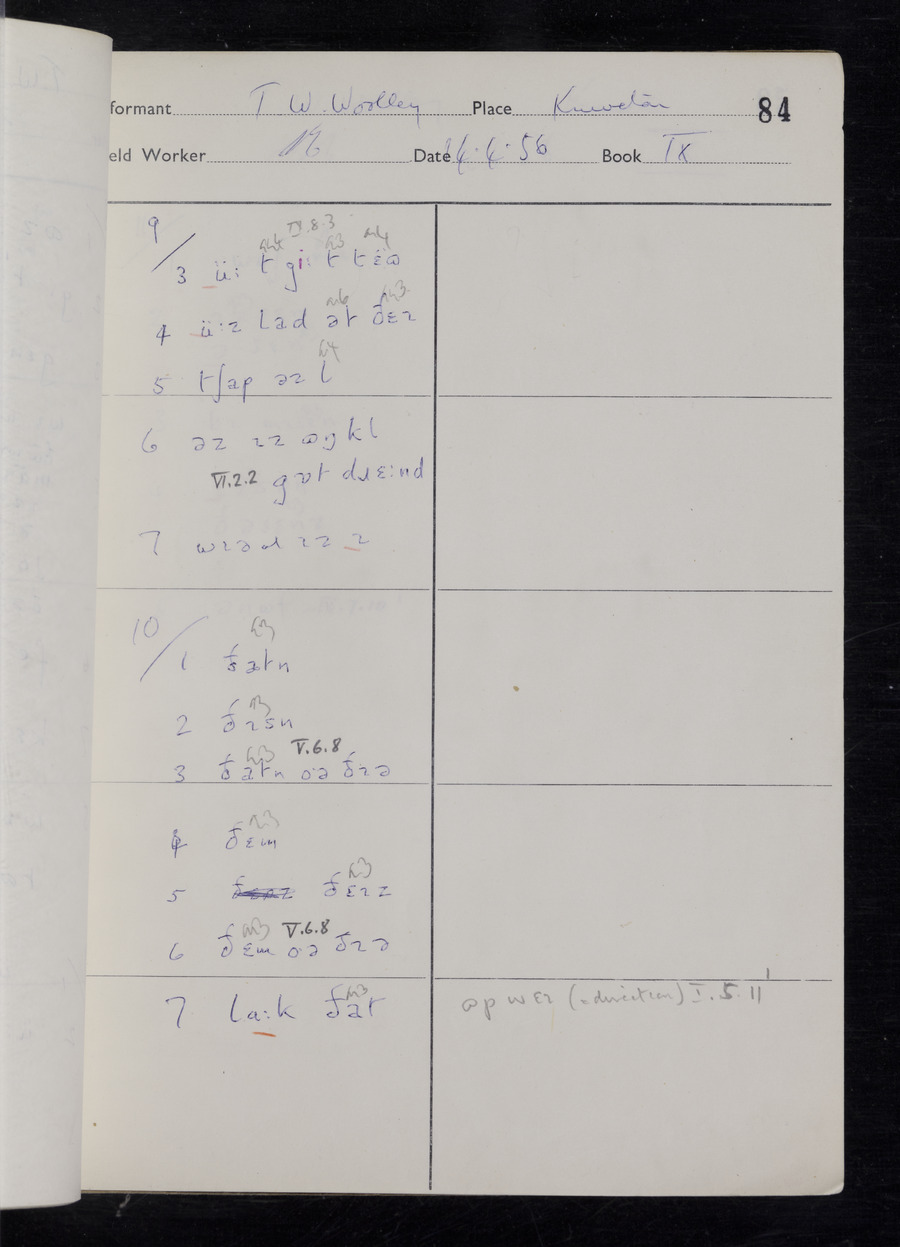 formant T W. Woolley Place Kniveton 84
eld Worker Date 14.4.56 Book IX
9/
IX.8.3
3 ü: t gi: t tɛ̈ʊ
4 ü:z lad ət ðɛɪ
5 tʃap əz l
6 əz ɪz ʊŋkl
VI.2.2 gɒt dɹɛ:nd
7 wɪəd ɪz ɪ
10/
1 ðatn
2 ðɪsn
V.6.8
3 ðatn oə ðɪə
4 ðɛm
5 ðɛɪz
V.6.8
6 ðɛm oə ðɪə
7 la:k ðat
ʊp wɛɪ (= direction) I.5.11